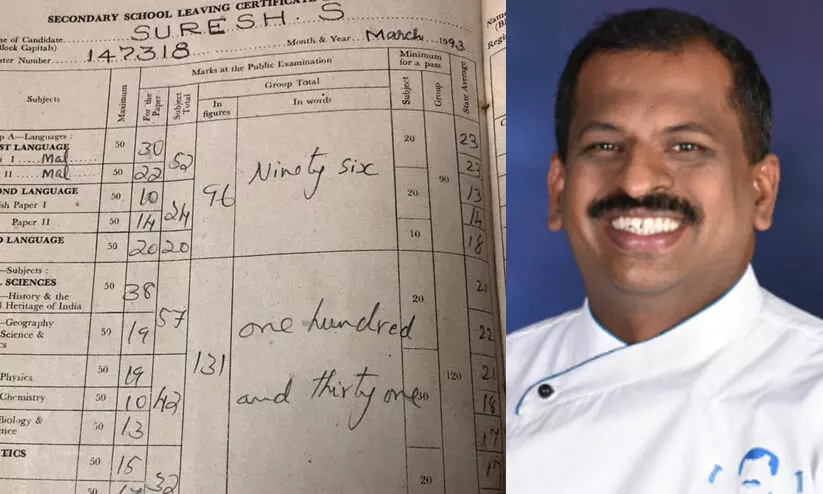 SECONDARY SCHOOL LEAVING CERTIFICATE
me of Candidate SURESH. S
lock Capitals)
ster Number 147318 Month & Year March 1993
Marks at the Public Examination Minimum for a pass State Average
Subjects Maximum For the Paper Subject Total Group Total Subject Group
In figures In words
p A—Languages :
ST LANGUAGE
I Mal 50 30 52 96 Ninety six 20 90 23
II Mal 50 22 23
OND LANGUAGE
sh Paper I 50 10 24 20 13
Paper II 50 14 14
D LANGUAGE 50 20 20 10 18
—Subjects :
L SCIENCES
—History & the
l Heritage of India 50 38 57 131 one hundred 20 120 21
—Geography 50 19 22
Science &
Physics 50 19 42 and thirty one 30 21
Chemistry 50 10 18
Biology & 50 13 17
nce
TICS 50 15 32 20 17